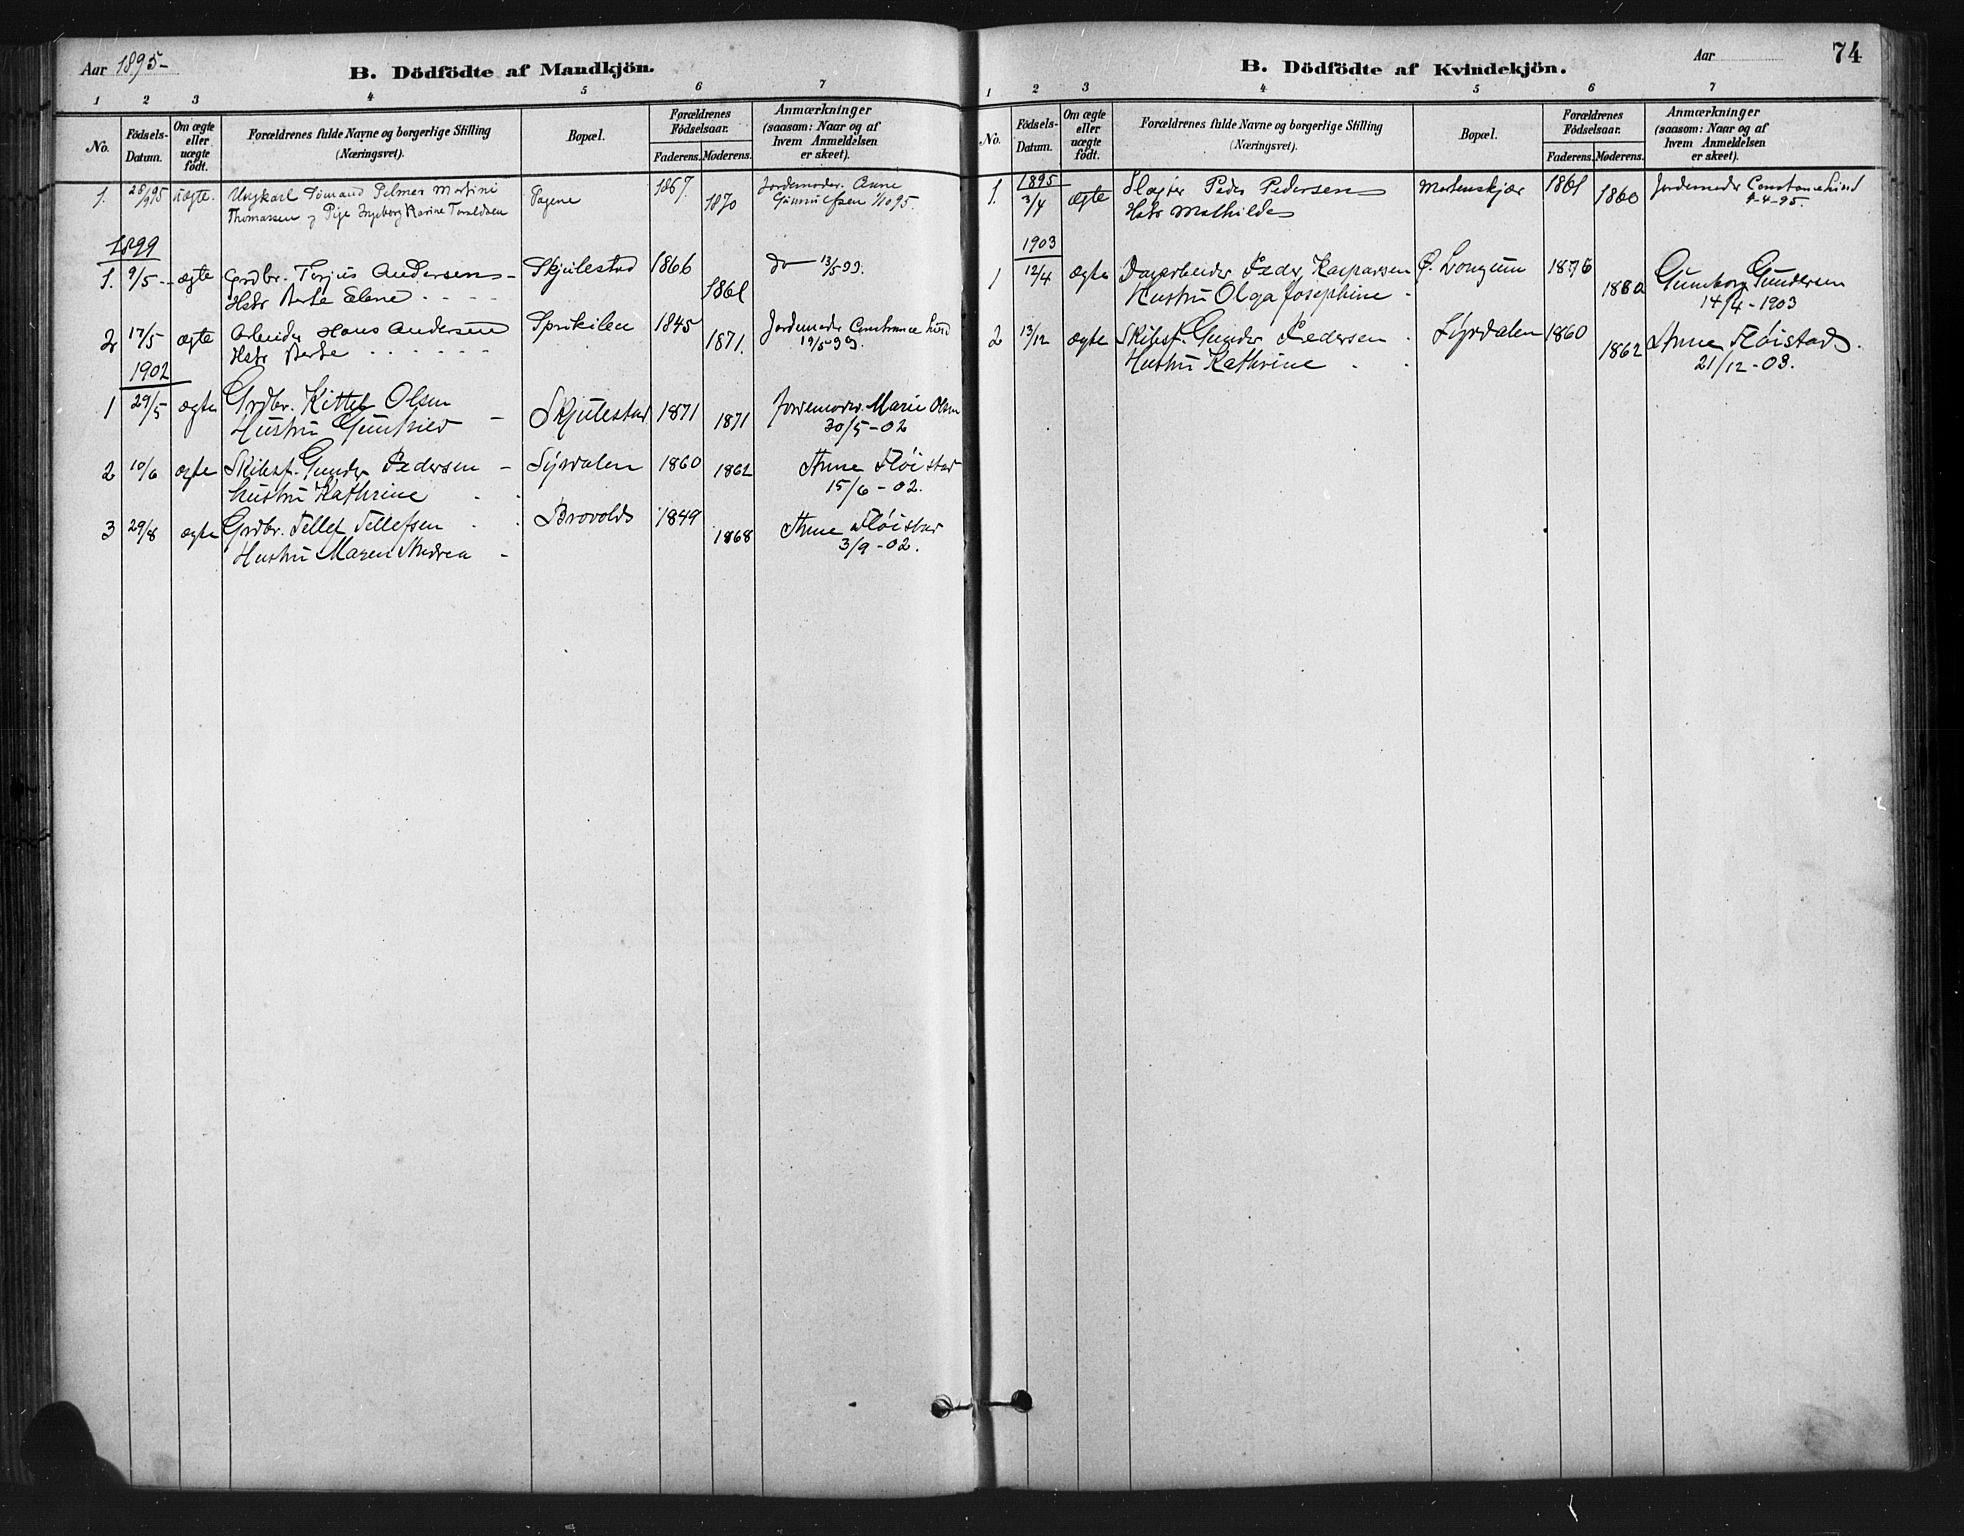 Aar 1895-
B. Dödfödte af Mandkjön.
1 2 3 4 5 6 7
No.
Födsels-Datum.
Om ægte eller uægte födt.
Forældrenes fulde Navne og borgerlige Stilling (Næringsvei).
Bopæl.
Forældrenes Födselsaar.
Faderens. Moderens.
Anmærkninger (saasom: Naar og af hvem Anmeldelsen er skeet).
1. 28/9 95 uægte. Ungkarl Sømand Pelmer Martini 1867 Jordemoder Anne
Thomassen og Pige Ingeborg Karine Toraldsen 1870
1899
1. 9/5 - ægte Grdbr. Terjus Andersen - Skjulestad 1866 do - 13/5 99.
Hstr Berte Elene 1861
2 17/5 ægte Arbeider Hans Andersen Sprikilen 1845 Jordemoder Constance Lind
Hstr Berte 1871. 19/5 99.
1902
1 29/5 ægte Grdbr. Kittel Olsen Skjulestad 1871 Jordemoder Marie Olsen
Hustru Gunhild - 1871 30/5 - 02
2 10/6 ægte Skibsf. Gunder Pedersen - Lyrdalen 1860 Anne Fløistad
hustru Kathrine 1862 15/6 - 02.
3 29/8 ægte Grdbr. Tellef Tellefsen Brovold 1849 Anne Fløistad
Hustru Maren Andrea - 1868 3/9 - 02.
Aar
74
B. Dödfödte af Kvindekjön.
1 2 3 4 5 6 7
No.
Födsels-Datum.
Om ægte eller uægte födt.
Forældrenes fulde Navne og borgerlige Stilling (Næringsvei).
Bopæl.
Forældrenes Födselsaar.
Faderens. Moderens.
Anmærkninger (saasom: Naar og af hvem Anmeldelsen er skeet).
1895
1. 3/4 ægte Peder Pedersen Mortenskjær 1861 Jordemoder Constance Lind
Hstr Mathilde 1860 4-4-95.
1903
1 12/4 ægte Dagarbeider Peder Kasparsen Ø. Longum 1876 Gunborg Gundersen
Hustru Olga Josephine 1880 14/4 - 1903
2 13/12 ægte Skibsf. Gunder Pedersen Lyrdalen 1860 Anne Fløistad.
Hustru Kathrine 1862 21/12 - 03.